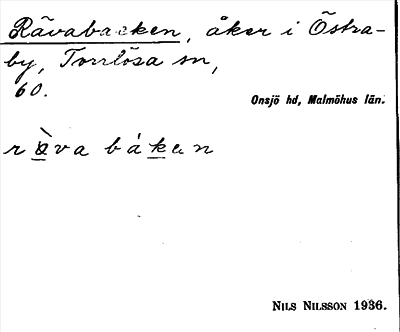 Rävabacken, åker i Östra-
by, Torrlösa sn,
60.
Onsjö hd, Malmöhus län.
ràva bákan
NILS NILSSON 1936.